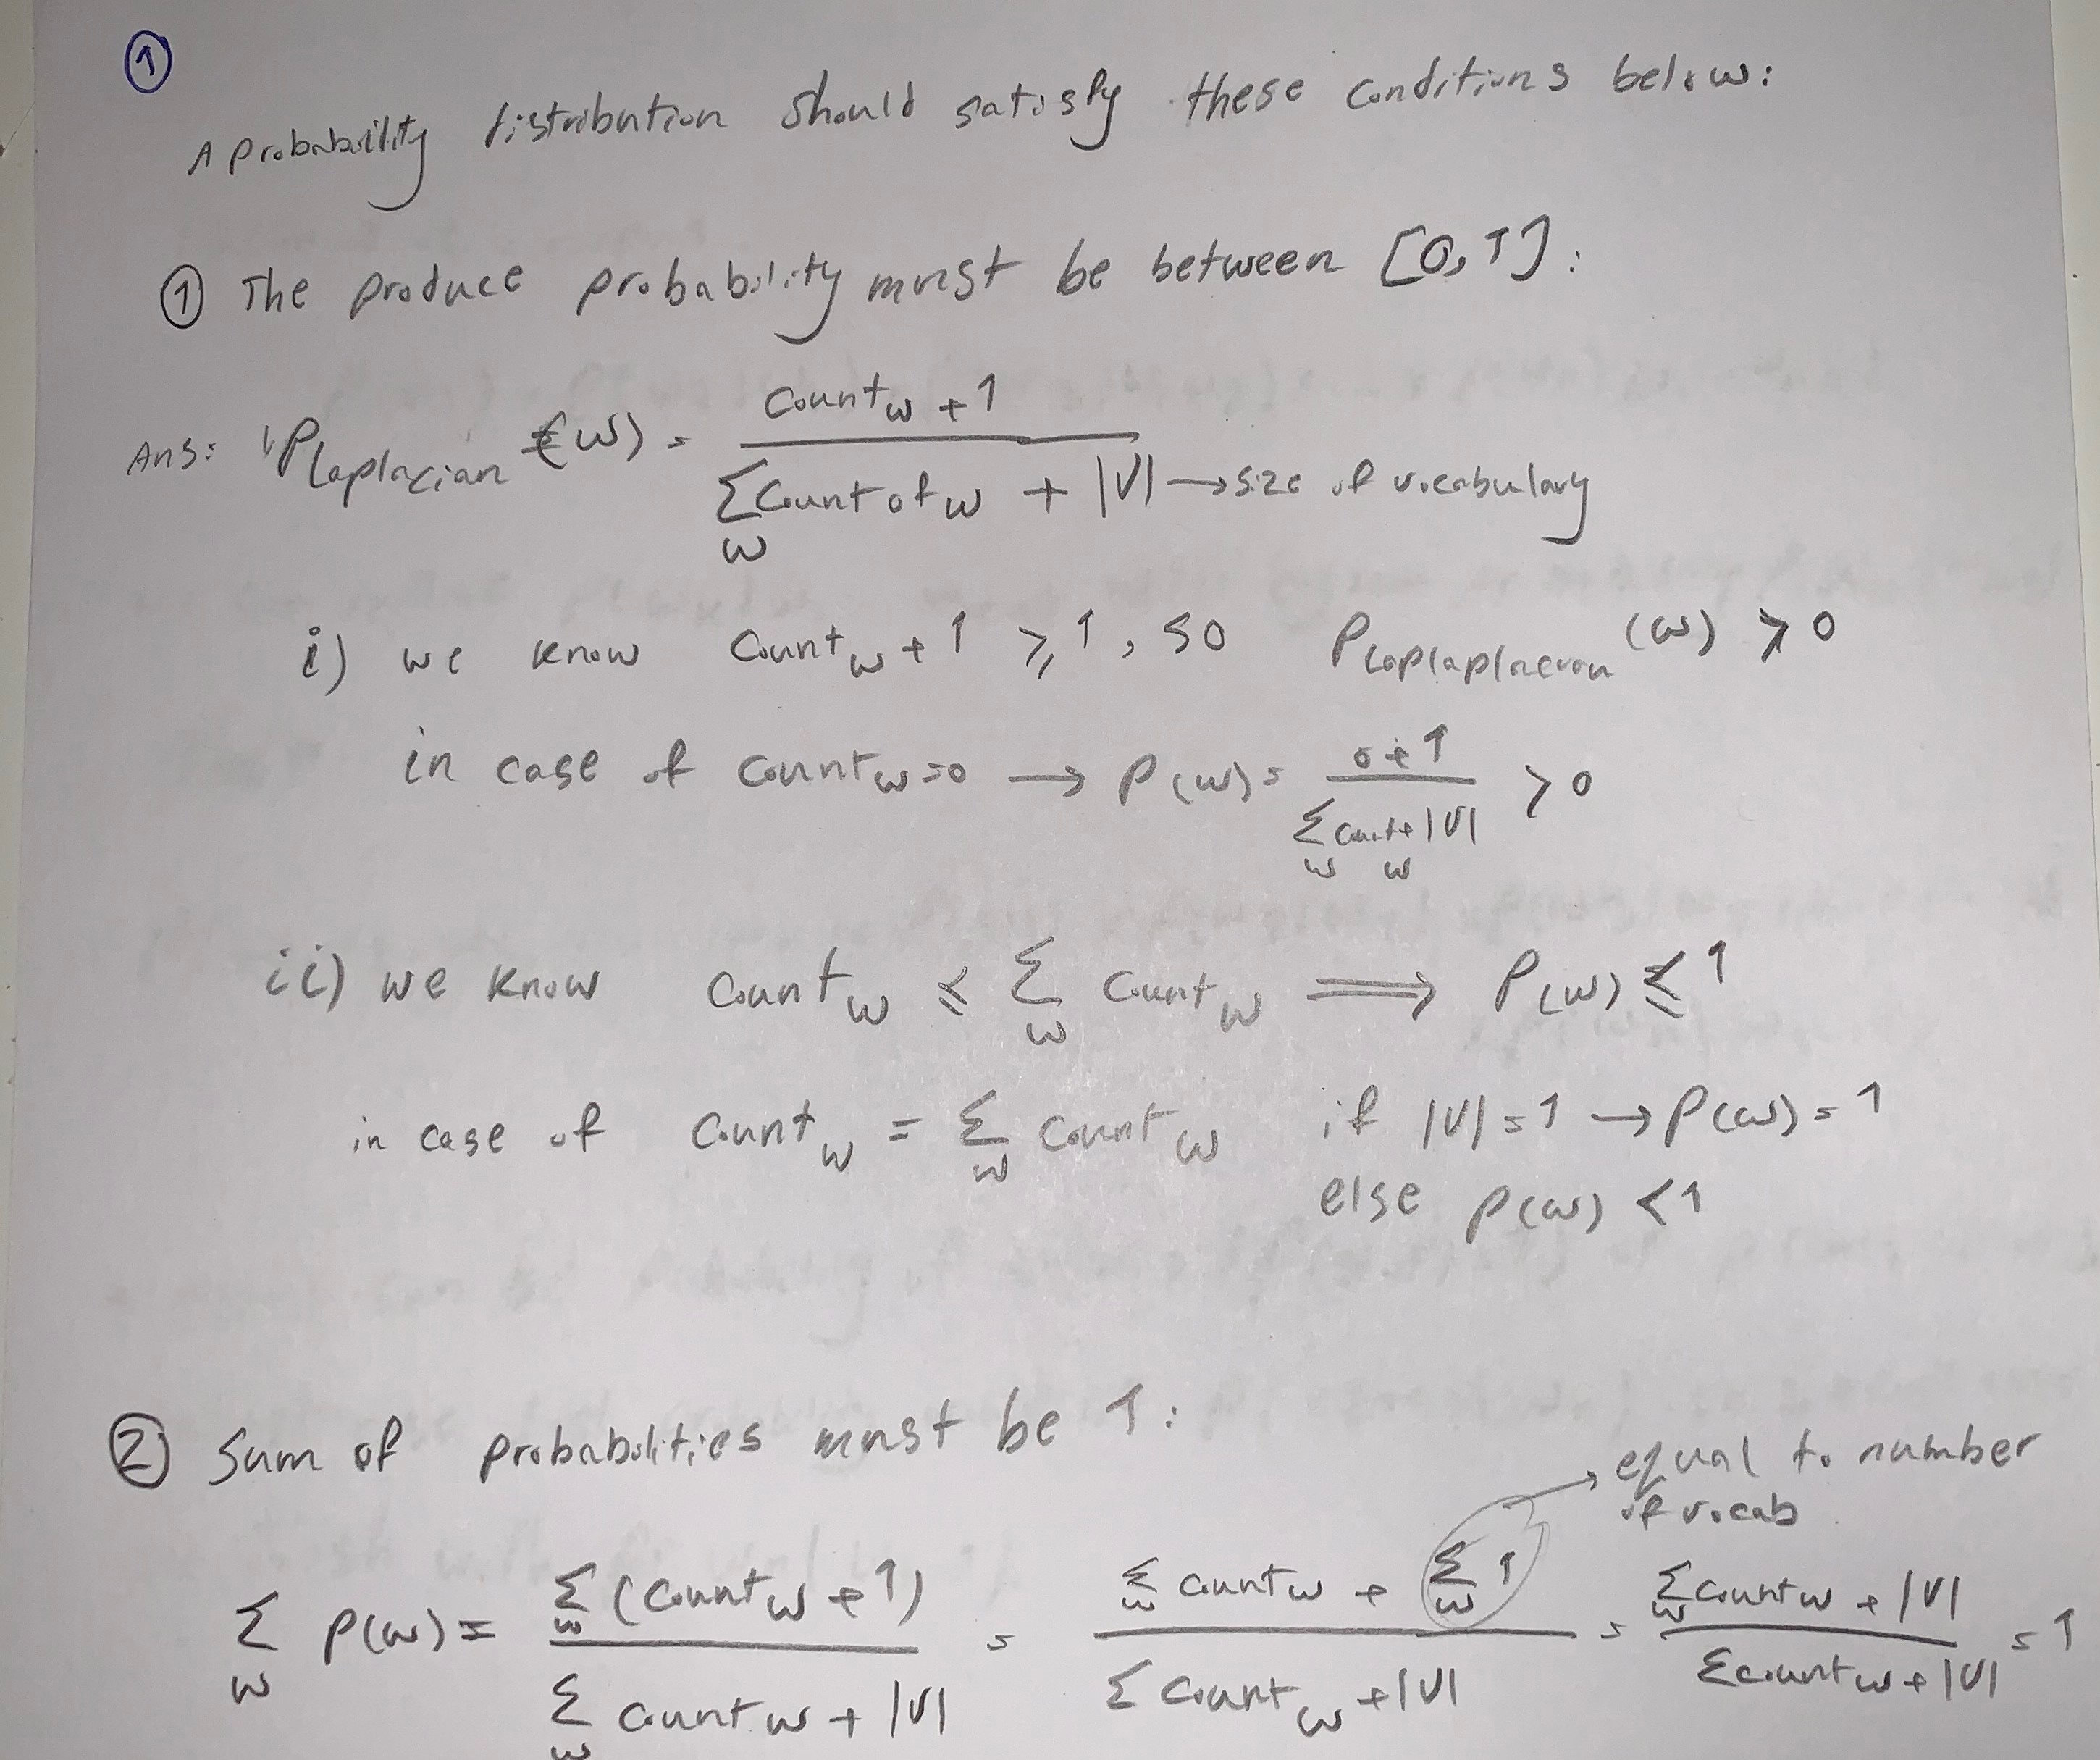 ①
A probabability distribution should satisfy these conditions below:
① The produce probability must be between [0,1]:
Ans: P_Laplacian (w) = (Count_w + 1) / (Σ_w Count of w + |V|) → size of vocabulary
i) we know Count_w + 1 ⩾ 1, so P_Loplaplacian (w) > 0
in case of Count_w = 0 → P(w) = (0+1) / (Σ_w Count_w + |V|) > 0
ii) we know Count_w ⩽ Σ_w Count_w ⟹ P(w) ⩽ 1
in case of Count_w = Σ_w Count_w if |V| = 1 → P(w) = 1
else P(w) < 1
② Sum of probabilities must be 1:
→ equal to number
of vocab
Σ_w P(w) = Σ_w (Count_w + 1) / (Σ_w Count_w + |V|) = (Σ_w Count_w + Σ_w 1) / (Σ Count_w + |V|) = (Σ_w Count_w + |V|) / (Σ Count_w + |V|) = 1